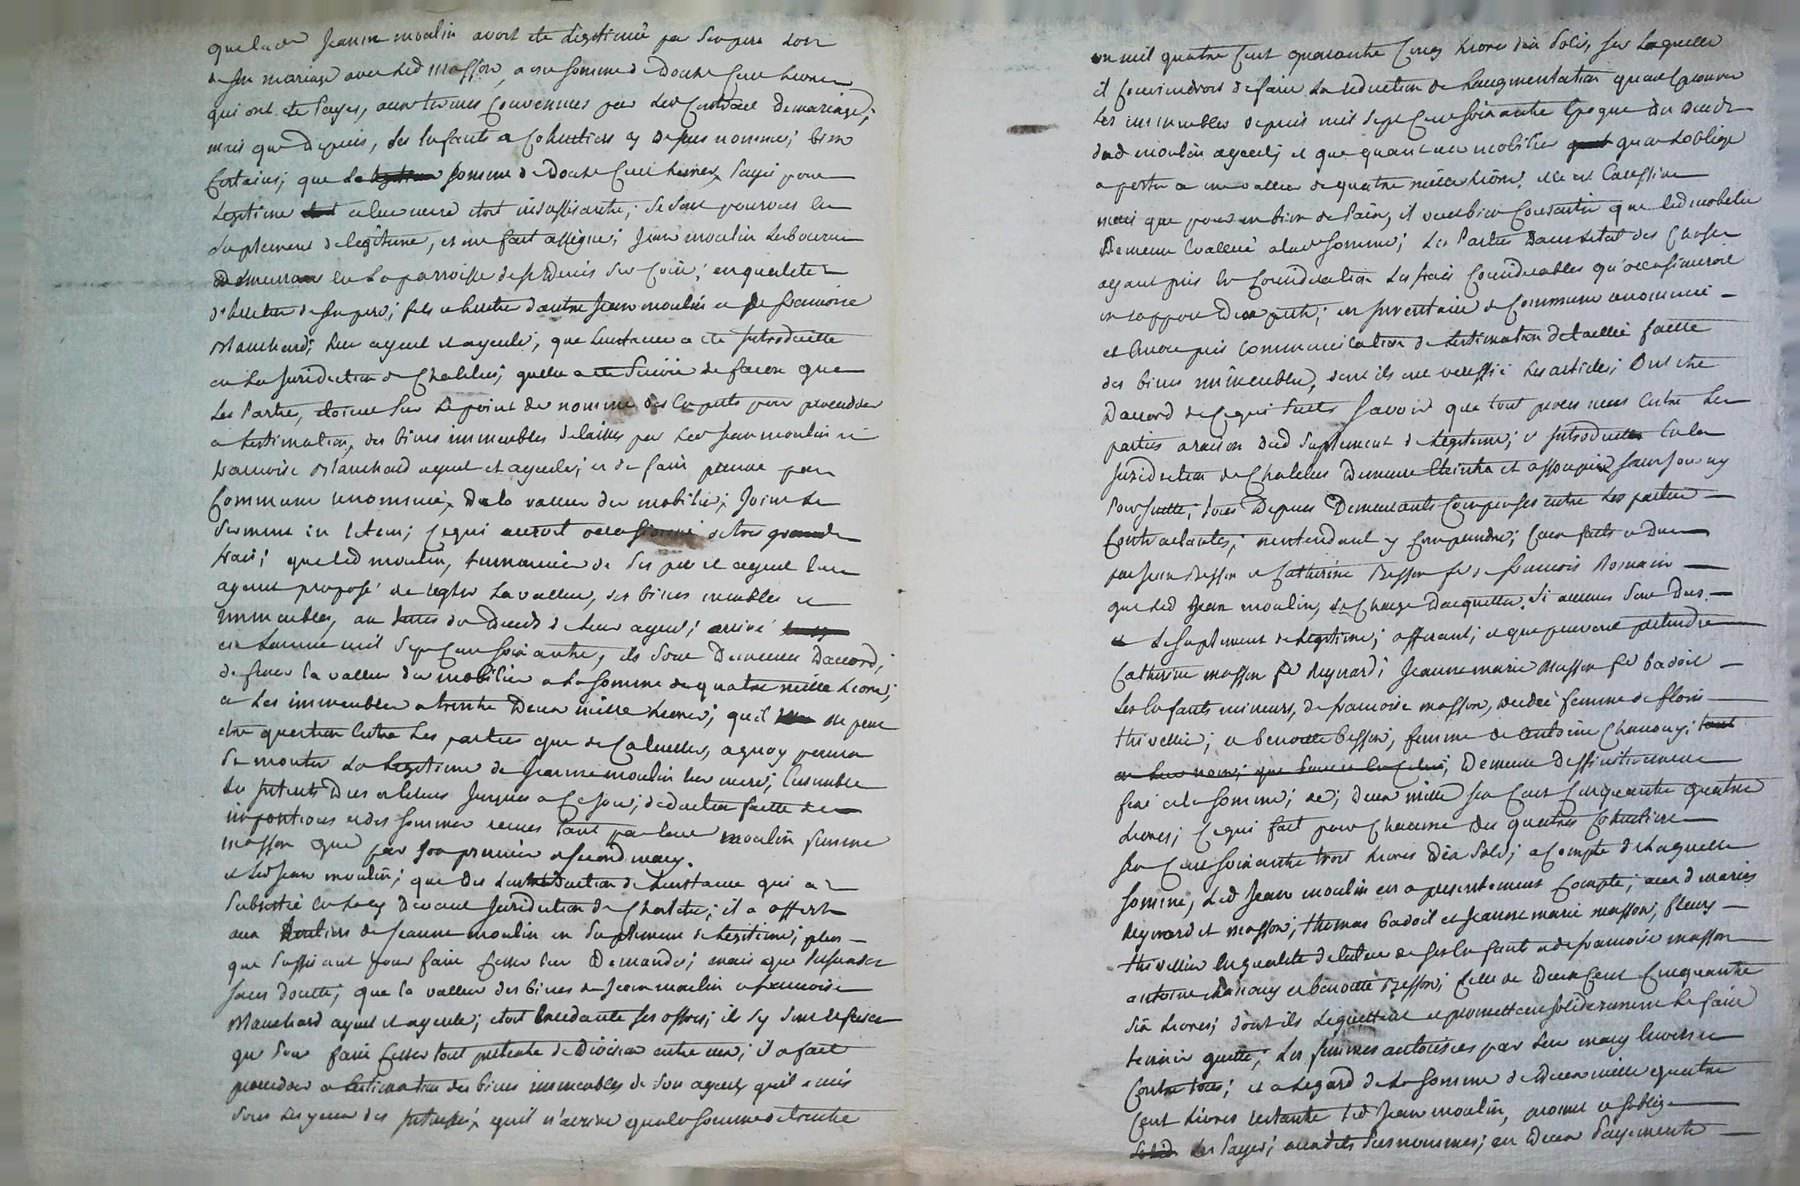 que lade Jeanne moulin avoit ete Legitimée par son pere Lors
de son mariage avec Led Masson, a une somme de Douze Cent Livres
qui ont ete Payes, aux termes Convenus par Led Contract De mariage;
mais que Depuis, ses Enfants & Cohéritiers cy Dessus nommés; bien
Certains; que La somme de Douze Cent Livres, Payée pour
Legitime a leur mere etoit insuffisante; se sont pourvus en
suplement de legitime, et ont fait assigner; Jean moulin Laboureur
Demeurant en La parroisse de St Denis sur Coise; en qualité
d'heritier de son pere; fils et heritier d'autre Jean moulin et de francoise
Blanchard; leur ayeul et ayeule; que Linstance a ete Introduitte
en La Juridiction de Chatelus; quelle a ete Suivie de facon que
Les Parties, etoient sur Le point de nommer des Experts pour proceder
a Lestimation, des biens immeubles delaissés par Led Jean moulin et
francoise Blanchard ayeul et ayeule; et de faire preuve par
Commune renommée, De la valeur du mobilier, Joint Le
Serment in litem; Ce qui auroit occasionné de tres grands
frais; que Led moulin, de ses pere et ayeul Leur
ayant proposé de regler La valleur, des biens meubles et
immeubles, au tems du Deceds de Leur ayeul; arrivé
en Lannee mil Sept Cent Soixante, ils sont Demeurés Daccord,
de fixer la valleur du mobilier a La somme de quatre mille Livres;
et Les immeubles a trente Deux mille Livres; quil ne peut
etre question Entre Les parties que de Calculer, a quoy pourra
Se monter La Legitime de Jeanne moulin leur mere; Ensemble
Les Interets Dus et Echus Jusques a Ce Jour; deduction faitte des
impositions et des sommes recues tant par lade moulin femme
masson que par son premier et second mary.
et Led Jean moulin; que Des Lintroduction de Linstance qui a
Subsisté en Lad Juridiction de Chatelus; il a offert
aux heritiers de Jeanne moulin un Suplement de Legitime; plus
que Suffisant pour faire Cesser leur Demande; mais que Pensant
sans doutte, que la valleur des biens de Jean moulin et francoise
Blanchard ayeul et ayeule; etoit Excedante ses offres; ils sy sont refusés
que Pour faire Cesser tout pretexte de Division entre eux; il a fait
proceder a Lestimation des biens immeubles de son ayeul; quil a mis
Sous Les yeux des Interessés; quil n'arrive qua la somme de trente
un mil quatre Cent quarante Cinq Livres dix Sols, sur Laquelle
il Conviendroit de faire La reduction de Laugmentation quont eprouvé
Les immeubles depuis mil Sept Cent Soixante Epoque du Deceds
dud moulin ayeul; et que quant au mobilier quon Loblige
a porter a une valleur de quatre mille Livres, elle est Excessive
mais que pour un bien de Paix, il veut bien Consentir que Led mobilier
Demeure Evallué a lade somme; Les Parties Dans Letat des Choses
ayant pris En Consideration Les frais Considerables qu'occasionneroit
un rapport Dexperts; un Inventaire de Commune renommée
et Encore pris Communication de Lestimation detaillée faitte
des biens immeubles, dont ils ont veriffié Les articles; Ont ete
Daccord de Ce qui Suit Scavoir que tout proces mus Entre Les
parties a raison dud Suplement de Legitime; et Introduitte En la
Juridiction de Chatelus Demeure Eteinte et assoupie sans y
Poursuitte; tous Depens Demeurants Compensés entre Les parties
Contractantes; nentendant y Comprendre; Ceux faits et dus
par Jean Besson et Catherine Besson fe de francois Romain
que Led Jean moulin, se Charge Dacquitter. Si aucuns Sont Dus
Le Suplement de Legitime; afferant; et que peuvent pretendre
Catherine masson fe Reynard; Jeanne marie Masson fe badoil
Les Enfants mineurs, de francoise masson, decedée femme de fleury
thivellier; et benoitte besson, femme de Antoine Chanony;
Demeure Deffinitivement
fixé a la somme; de; Deux mille six Cent Cinquante quatre
Livres; Ce qui fait pour Chacune Des quatre Cohéritiers
Six Cent Soixante trois Livres Dix Sols; a Compte de Laquelle
Somme, Led Jean moulin en a presentement Compté; aux d mariés
Reynard et masson; thomas badoil et Jeanne marie masson; fleury
thivellier En qualité de tuteur de ses Enfants et de francoise masson
antoine chanony et benoitte Besson; Celle de Deux Cent Cinquante
Six Livres; dont ils Le quittent et promettent solidairement Le faire
tenir quitte; Les femmes autorisées par Leur mary Envers et
Contre tous; et a Legard de La Somme de Deux mille quatre
Cent Livres restante Led Jean moulin, promet et soblige
Les Payer; auxdits Susnommes; en Deux Payements